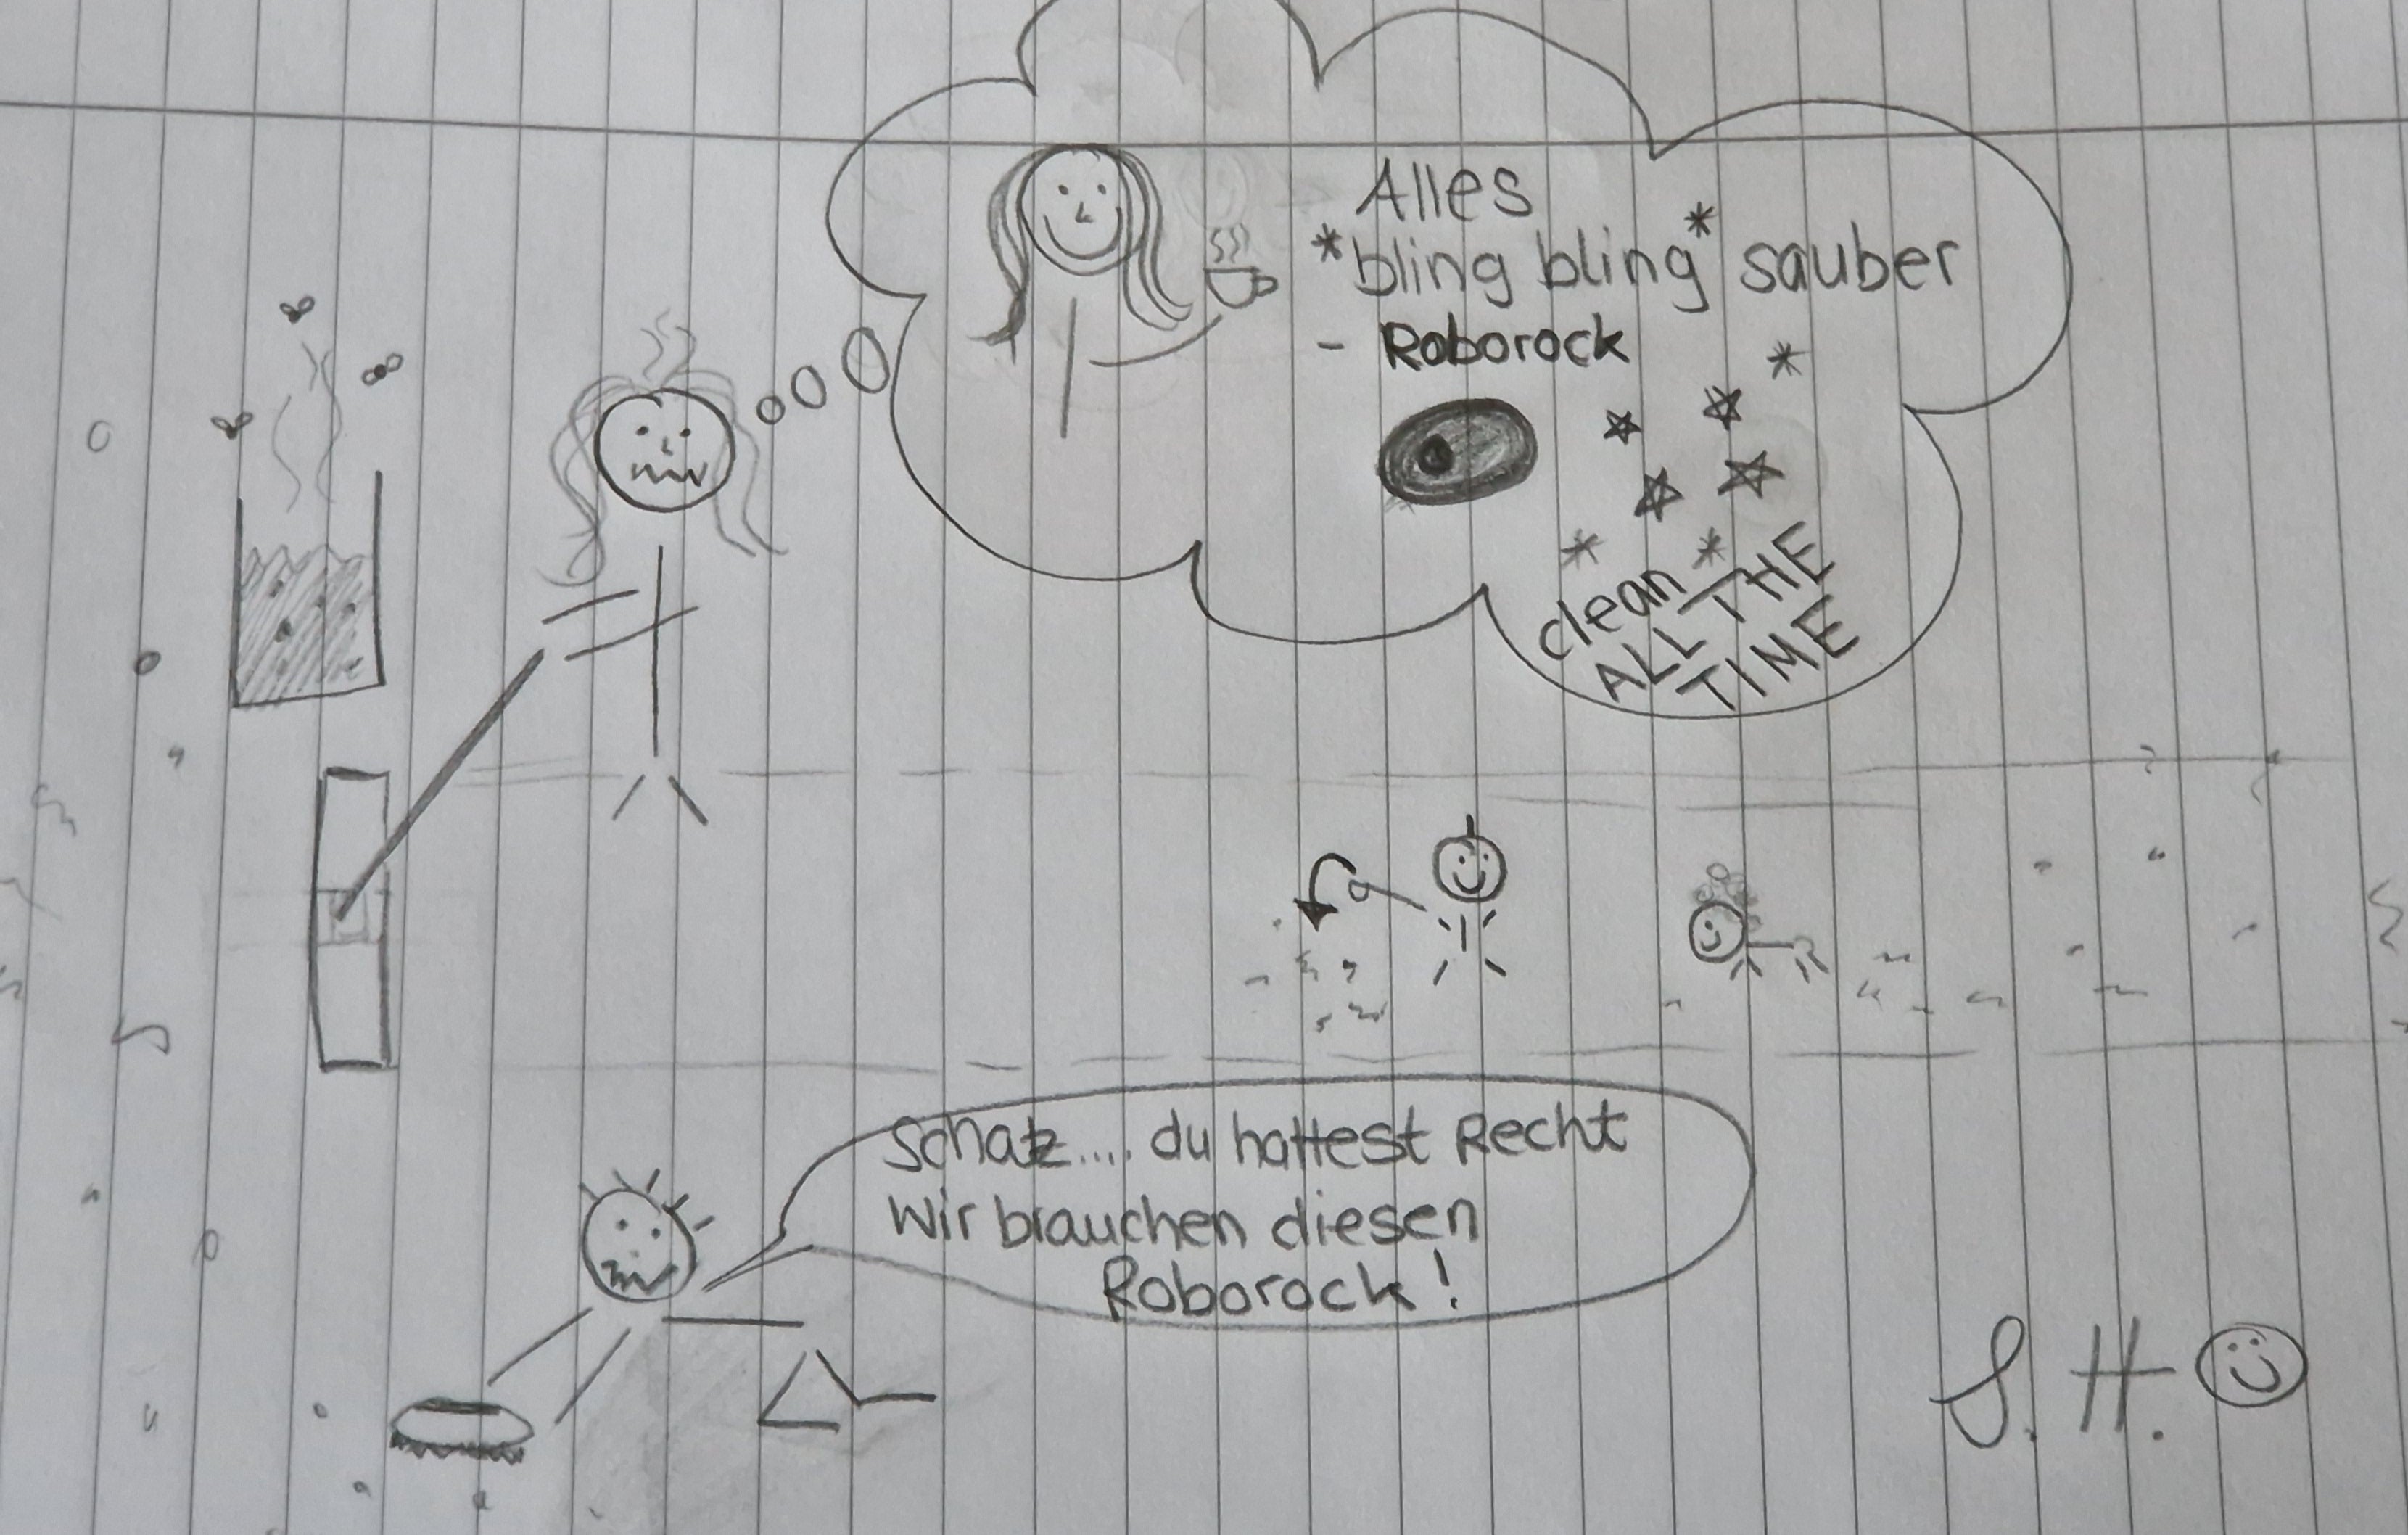 Alles
*bling bling* sauber
- Roborock
clean
ALL THE
TIME
Schatz.... du hattest Recht
Wir brauchen diesen
Roborock!
S. H.